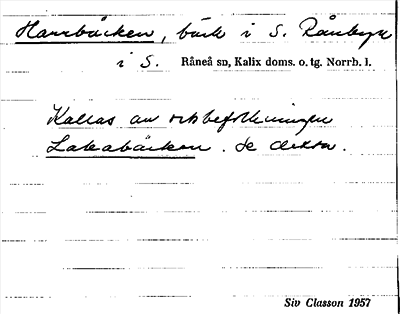 Harrbäcken, bäck i S. Rånbyn
i S. Råneå sn, Kalix doms. o. tg. Norrb. l.
Kallas av ortsbefolkningen
Lakabäcken. Se detta.
Siv Classon 1957